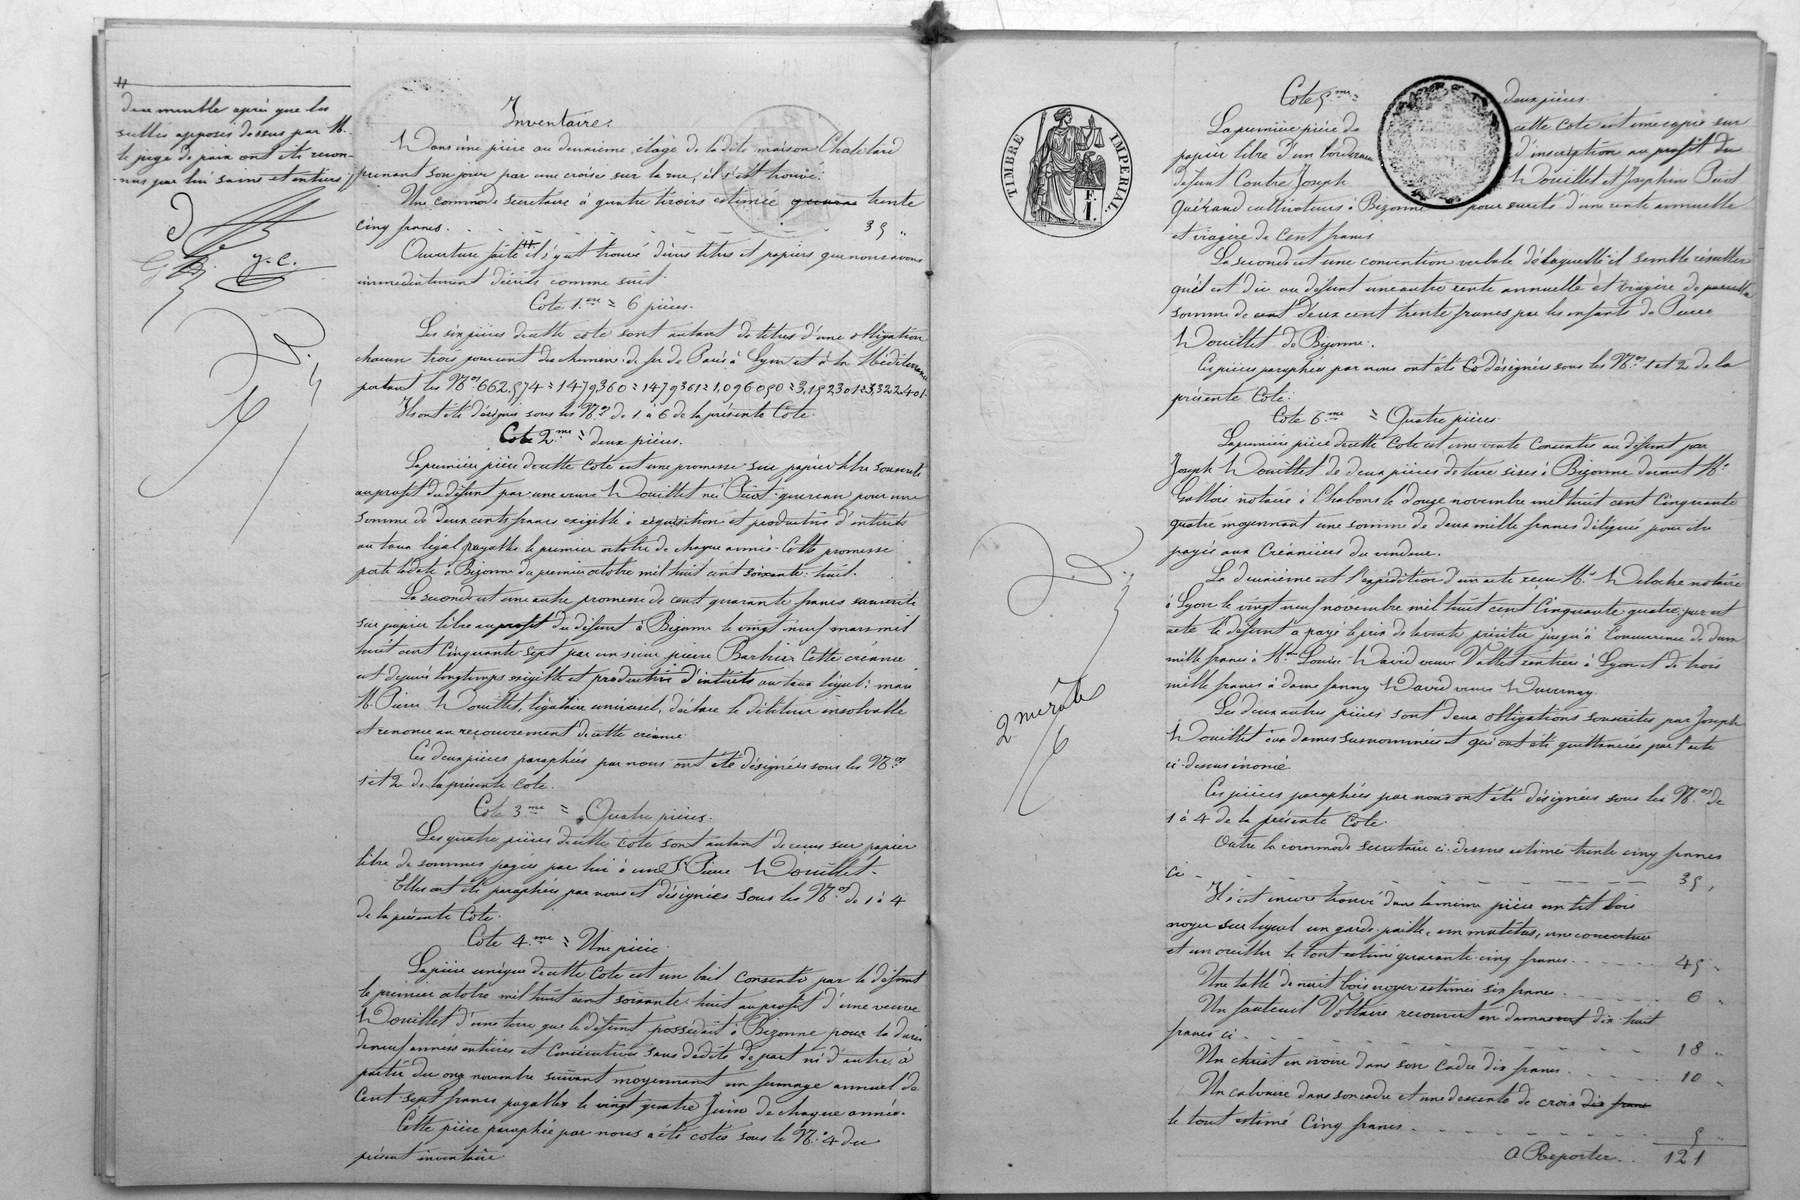 du meuble après que les
scellés apposés dessus par M.
le juge de paix ont été recon-
nus par lui sains et entiers
Inventaire
Dans une pièce au deuxième étage de la dite maison Chalelard
prenant son jour par une croisée sur la rue, il s'est trouvé:
Une commode secrétaire à quatre tiroirs estimée trente
cinq francs. 35 "
Ouverture faite il s'y est trouvé divers titres et papiers que nous avons
immédiatement décrits comme suit:
Cote 1ere = 6 pièces.
Les six pièces de cette cote sont autant de titres d'une obligation
chacun trois pour cent du chemin de fer de Paris à Lyon et à la Méditerranée
portant les Nos 662,574 = 1479360 = 1479361 = 1,096050 = 3,152301 = 3,322401.
Ils ont été désignés sous les Nos de 1 à 6 de la présente Cote.
Cote 2me = deux pièces.
La première pièce de cette cote est une promesse sur papier libre souscrite
au profit du défunt par une veuve Douillet née Puot-guerau pour une
somme de deux cents francs exigible à réquisition et productive d'intérêts
au taux légal payable le premier octobre de chaque année. Cette promesse
porte la date à Bizonne du premier octobre mil huit cent soixante-huit.
La seconde est une autre promesse de cent quarante francs souscrite
sur papier libre au profit du défunt à Bizonne le vingt-neuf mars mil
huit cent cinquante-sept par un sieur pierre Barbier. Cette créance
est depuis longtemps exigible et productive d'intérêts au taux légal: mais
M. Pierre Douillet, légataire universel, déclare le débiteur insolvable
et renonce au recouvrement de cette créance.
Ces deux pièces paraphées par nous ont été désignées sous les Nos
1 et 2 de la présente cote.
Cote 3me = Quatre pièces.
Les quatre pièces de cette cote sont autant de reçus sur papier
libre de sommes payées par lui à un Sr Pierre Douillet.
Elles ont été paraphées par nous et désignées sous les Nos de 1 à 4
de la présente Cote.
Cote 4me = Une pièce.
La pièce unique de cette Cote est un bail consenti par le défunt
le premier octobre mil huit cent soixante-huit au profit d'une veuve
Douillet d'une terre que le défunt possédait à Bizonne pour la durée
de neuf années entières et consécutives sans dédite de part ni d'autre, à
partir du onze novembre suivant moyennant un fermage annuel de
Cent-sept francs payables le vingt quatre Juin de chaque année.
Cette pièce paraphée par nous a été cotée sous le No 4 du
présent inventaire
TIMBRE IMPERIAL.
E. I.
2 me rôle
Cote 5me = deux pièces.
La première pièce de cette Cote est une copie sur
papier libre d'un bordereau d'inscription au profit du
défunt Contre Joseph Douillet et Josephine Puot
Guérand cultivateurs à Bizonne pour sureté d'une rente annuelle
et viagère de cent francs
La seconde est une convention verbale de laquelle il semble résulter
qu'il est dû au défunt une autre rente annuelle et viagère de pareille
somme de cent deux cent trente francs par les enfants de Pierre
Douillet de Bizonne.
Ces pièces paraphées par nous ont été désignées sous les Nos 1 et 2 de la
présente Cote.
Cote 6me = Quatre pièces.
La première pièce de cette Cote est une vente Consentie au défunt par
Joseph Douillet de deux pièces de terre sises à Bizonne devant Me
Gallois notaire à Chabons le douze novembre mil huit cent cinquante
quatre moyennant une somme de deux mille francs délégué pour être
payée aux Créanciers du vendeur.
La deuxième est l'expédition d'un acte reçu Me Deloche notaire
à Lyon le vingt neuf novembre mil huit cent cinquante quatre; par cet
acte le défunt a payé le prix de la vente précitée jusqu'à concurrence de deux
mille francs à Mme Louise David veuve Vallet rentière à Lyon et de trois
mille francs à dame fanny David veuve Duvernay
Les deux autres pièces sont deux obligations souscrites par Joseph
Douillet aux dames susnommées et qui ont été quittancées par l'acte
ci-dessus énoncé
Ces pièces paraphées par nous ont été désignées sous les Nos de
1 à 4 de la présente Cote.
Outre la commode secrétaire ci-dessus estimée trente cinq francs
Ci 35,
Il s'est encore trouvé dans la même pièce un lit bois
noyer sur lequel un garde-paille, un matelas, une couverture
et un oreiller le tout estimé quarante-cinq francs. 45 "
Une table de nuit bois noyer estimée six francs. 6 "
Un fauteuil Voltaire recouvert en damas dix-huit
francs ci 18 "
Un christ en ivoire dans son cadre dix francs. 10 "
Un calvaire dans son cadre et une descente de croix dix francs
le tout estimé Cinq francs. 5 "
A Reporter. 121